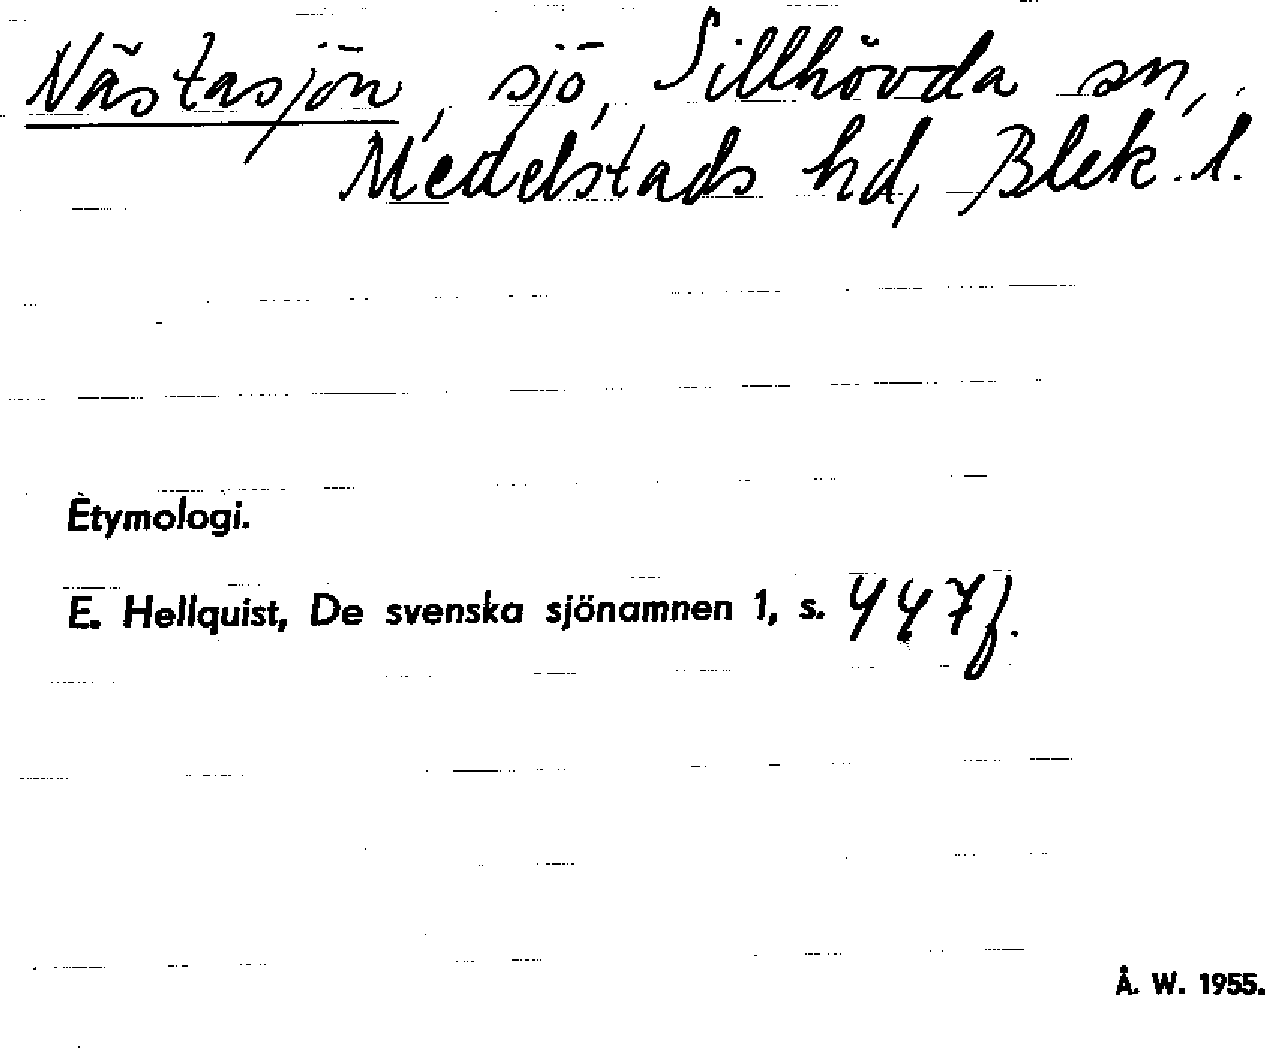 Nästasjön, sjö, Sillhövda sn,
Medelstads hd, Blek. l.
Etymologi.
E. Hellquist, De svenska sjönamnen 1, s. 447 f.
Å. W. 1955.